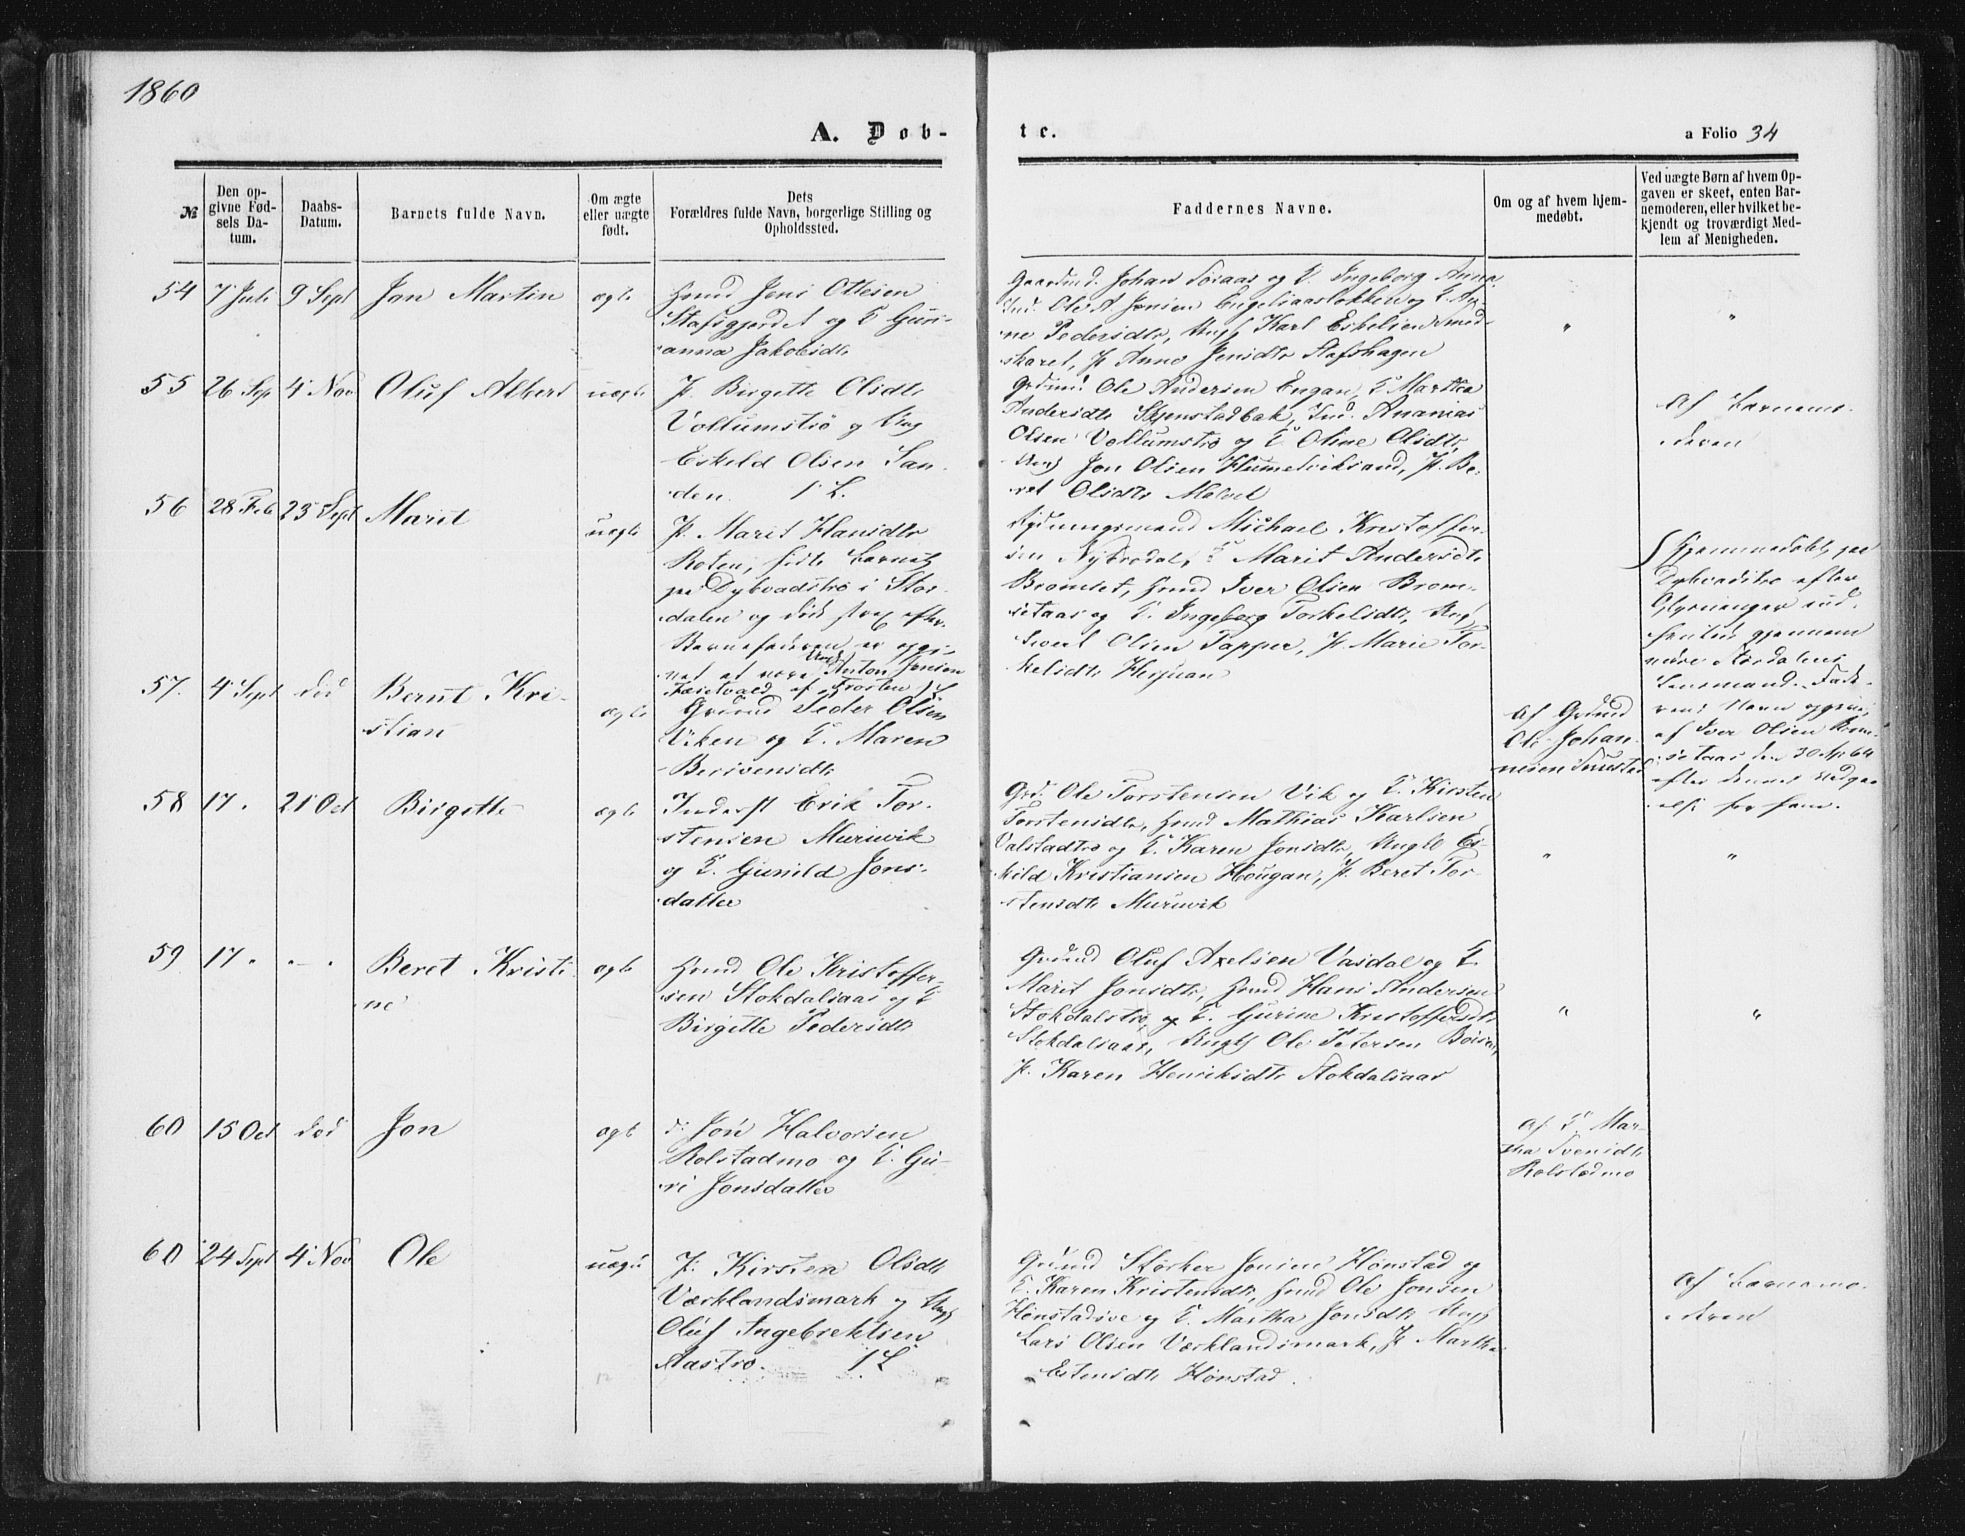 1860
A. Døb-
te.
a Folio 34
№
Den op-
givne Fød-
sels Da-
tum.
Daabs-
Datum.
Barnets fulde Navn.
Om ægte
eller uægte
født.
Dets
Forældres fulde Navn, borgerlige Stilling og
Opholdssted.
Faddernes Navne.
Om og af hvem hjem-
medøbt.
Ved uægte Børn af hvem Op-
gaven er skeet, enten Bar-
nemoderen, eller hvilket be-
kjendt og troværdigt Med-
lem af Menigheden.
54 7 Juli 9 Sept Jon Martin ægte
Hmd Jens Ottesen
og E Guri-
anna Jakobsdtr
Gaardmd. Johan og E. Ingeborg Anna
Ind. Ole A Jensen og E. An-
ne Pedersdtr, Ungk Karl Eskelsen Smed-
skaret, P. Anne Jensdtr Stafshagen
"
"
55 26 Sep 4 Nov Oluf Albert uægte
P. Birgitte Olsdtr
Vollumstrø og Ung
Eskild Olsen San-
den. 1 L.
Grdmd Ole Andersen Engan, E Martha
Andersdtr Ind. Ananias
Olsen Vollumstrø og E Oline Olsdtr,
Ung Jon Olsen Humelviksand, P. Be-
ret Olsdtr Malvik
Af Barnemo-
deren
56 28 Feb 23 Sept Marit uægte
P. Marit Hansdtr
Roten, fødte Barnet
paa Dybvadstrø i Stør-
dalen og døde strax efter.
Barnefaderen er opgi-
vet at være Ungk Anton Jensen
af Frosten 1 L
Rydningsmand Michael Kristoffer-
sen E Marit Andersdtr
Bromset, Hmd Iver Olsen Brom-
setaas og E. Ingeborg Torkelsdtr, Ungk
Sivert Olsen Tapper, P. Marie Tor-
kelsdtr Herjuan
Hjemmedøbt paa
Dybvadstrø efter
Oplysninger ind-
hentet gjennem
nedre Størdalens
Lensmand. Fade-
rens Navn opgivet
af Iver Olsen Brom-
setaas den 30
efter dennes Vedgaa-
else for ham.
57. 4 Sept død Bernt Kri-
stian
ægte
Grdmd Peder Olsen
Viken og E. Maren
Af Grdmd
Ole Johan-
nesen
58 17. 21 Oct Birgitte ægte
Inderst Erik Tor-
stensen Muruvik
og E. Gunild Jons-
datter
Grd. Ole Torstensen Vik og E. Kirsten
Torstensdtr, Hmd Mathias Karlsen
Valstadtrø og E. Karen Jonsdtr, Ungk Es-
kild Kristiansen Hougan, P. Beret Tor-
stensdtr Muruvik
"
"
59 17. -.- . Beret Kristi-
ne
ægte
Hmd Ole Kristoffer-
sen Stokdalsaas og E
Birgitte Pedersdtr
Grdmd Oluf Axelsen Vasdal og E.
Marit Jonsdtr, Hmd Hans Andersen
Stokdalstrø, og E. Gurine Kristoffersdtr
Stokdalsaas, Ungk Ole Petersen
P. Karen Henriksdtr Stokdalsaas
"
"
60 15 Oct død Jon ægt
Jon Halvorsen
Rolstadmo og E. Gu-
ri Jonsdatter
Af E. Mar-
tha Svensdtr
Rolstadmo
60 24 Sept 4 Nov Ole uægte
P. Kirsten Olsdtr
Værklandsmark og Ungk
Oluf Ingebrektsen
Aastrø. 1 L
Grdmd Størker Jonsen Hønstad og
E. Karen Kristensdtr, Hmd Ole Jonsen
og E. Martha Jonsdtr Ungk
Lars Olsen Værklandsmark, P Martha
Estensdtr Hønstad.
Af Barnemo-
deren